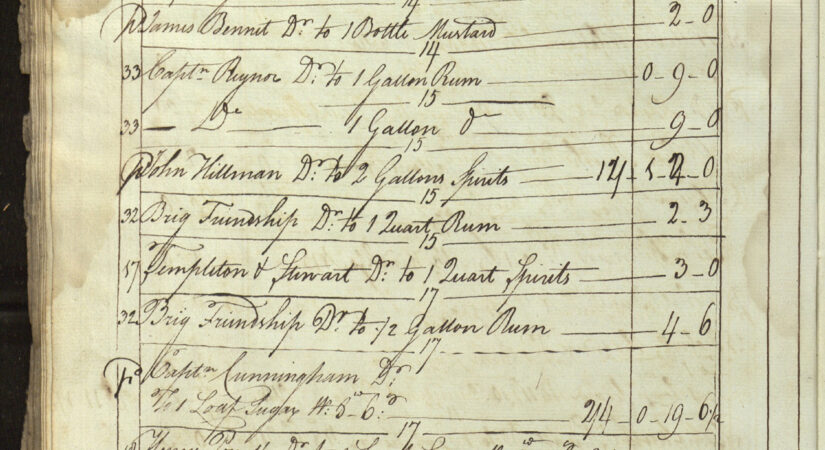 14
Pd James Bennet Dr. to 1 Bottle Mustard 2-0
14
33 Captn. Reynor Dr. to 1 Gallon Rum 0-9-0
15
33 — Do — 1 Gallon do 9-0
15
Pd John Hillman Dr. to 2 Gallons Spirits 12/ 0
15
32 Brig Friendship Dr. to 1 Quart Rum 2-3
15
17 Templeton & Stewart Dr. to 1 Quart Spirits 3-0
17
32 Brig Friendship Dr. to 1/2 Gallon Rum 4-6
17
Pd Captn. Cunningham Dr.
To 1 Loaf Sugar 0-19-6 1/2
17